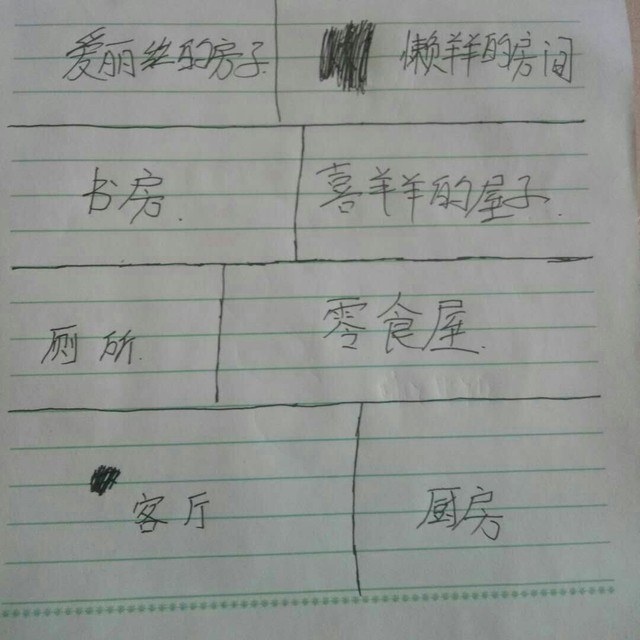 爱丽丝的房子 懒羊羊的房间
书房. 喜羊羊的屋子.
厕所. 零食屋.
客厅 厨房